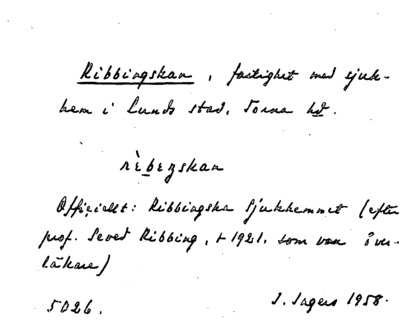 Ribbingskan, fastighet med sjuk-
hem i Lunds stad, Torna hd.
rìbeŋskan
Officiellt: Ribbingska Sjukhemmet (efter
prof. Seved Ribbing, † 1921, som var över-
läkare)
5026.
I. Ingers 1958.